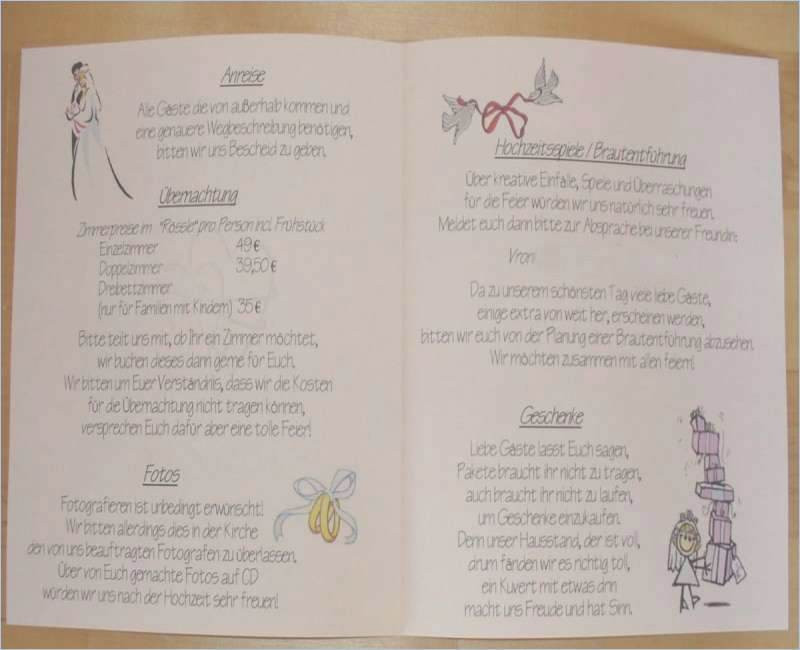 Anreise
Alle Gäste die von außerhalb kommen und
eine genauere Wegbeschreibung benötigen,
bitten wir uns Bescheid zu geben.
Übernachtung
Zimmerpreise im "Rössle" pro Person incl. Frühstück
Einzelzimmer 49 €
Doppelzimmer 39,50 €
Dreibettzimmer
(nur für Familien mit Kindern) 35 €
Bitte teilt uns mit, ob Ihr ein Zimmer möchtet,
wir buchen dieses dann gerne für Euch.
Wir bitten um Euer Verständnis, dass wir die Kosten
für die Übernachtung nicht tragen können,
versprechen Euch dafür aber eine tolle Feier!
Fotos
Fotografieren ist unbedingt erwünscht!
Wir bitten allerdings dies in der Kirche
den von uns beauftragten Fotografen zu überlassen.
Über von Euch gemachte Fotos auf CD
würden wir uns nach der Hochzeit sehr freuen!
Hochzeitsspiele / Brautentführung
Über kreative Einfälle, Spiele und Überraschungen
für die Feier würden wir uns natürlich sehr freuen.
Meldet euch dann bitte zur Absprache bei unserer Freundin:
Vroni
Da zu unserem schönsten Tag viele liebe Gäste,
einige extra von weit her, erscheinen werden,
bitten wir euch von der Planung einer Brautentführung abzusehen.
Wir möchten zusammen mit allen feiern!
Geschenke
Liebe Gäste lasst Euch sagen,
Pakete braucht ihr nicht zu tragen,
auch braucht ihr nicht zu laufen,
um Geschenke einzukaufen.
Denn unser Hausstand, der ist voll,
drum fänden wir es richtig toll,
ein Kuvert mit etwas drin
macht uns Freude und hat Sinn.